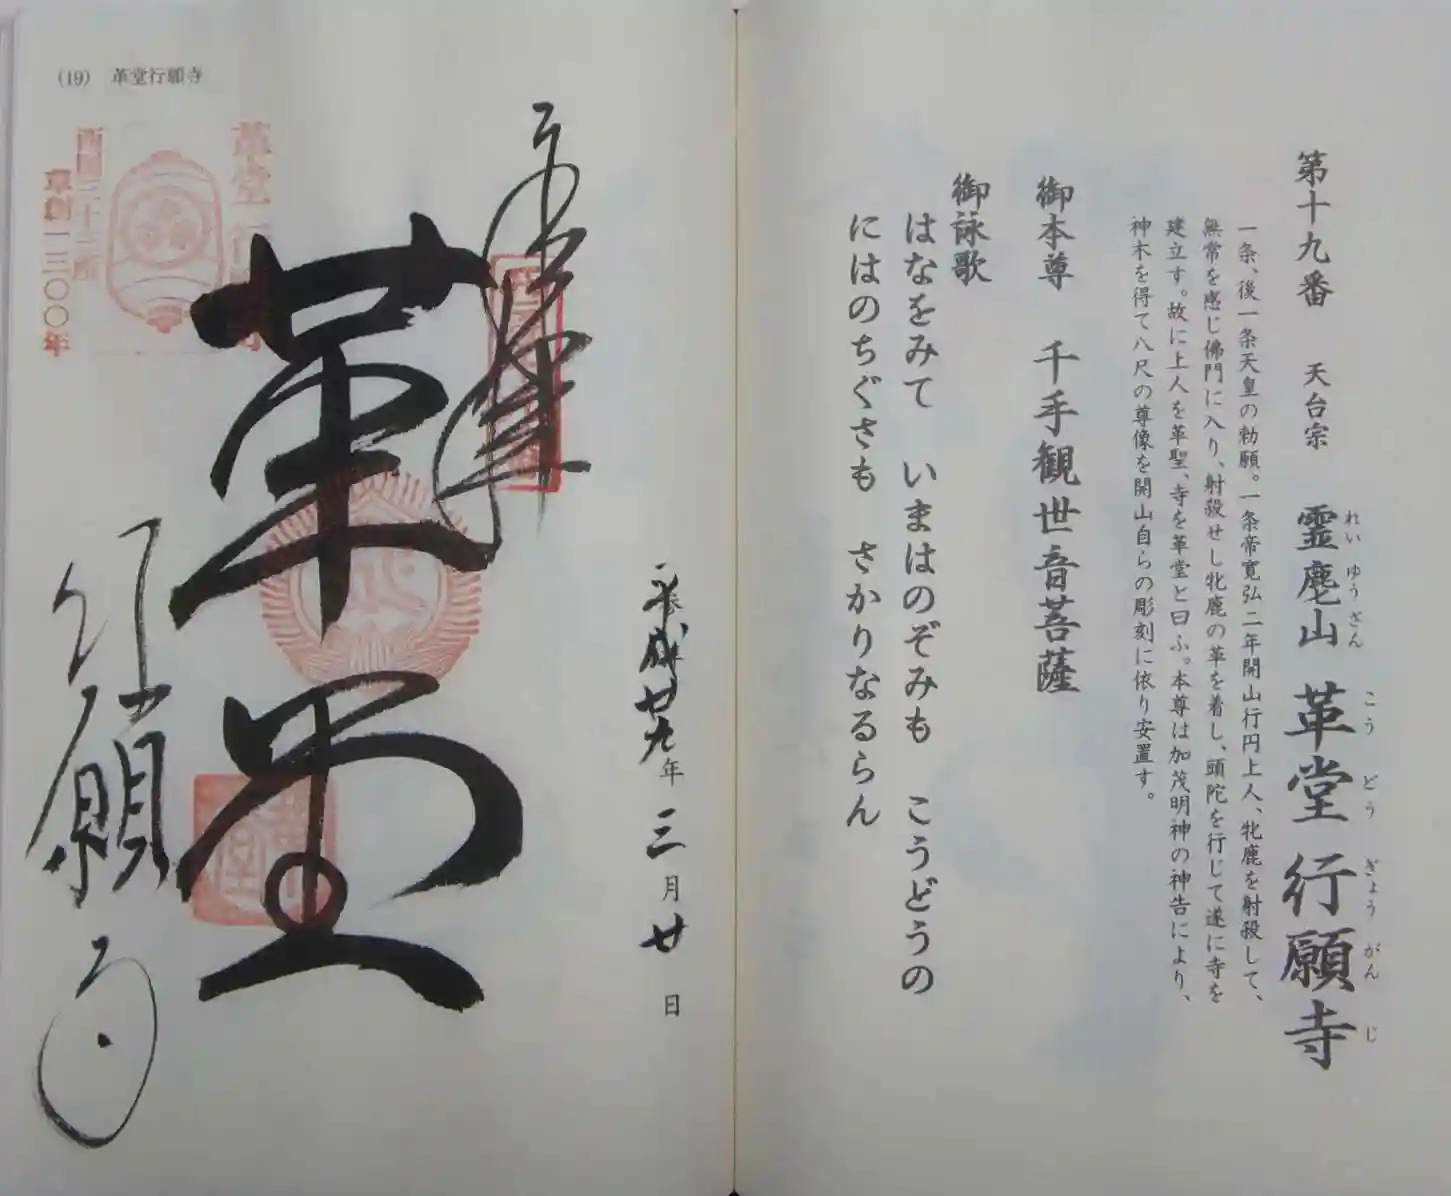 第十九番 天台宗 霊麀山 革堂 行願寺
れいゆうざん こう どう ぎょう がん じ
一条、後一条天皇の勅願。一条帝寛弘二年開山行円上人、牝鹿を射殺して、
無常を感じ佛門に入り、射殺せし牝鹿の革を着し、頭陀を行じて遂に寺を
建立す。故に上人を革聖、寺を革堂と曰ふ。本尊は加茂明神の神告により、
神木を得て八尺の尊像を開山自らの彫刻に依り安置す。
御本尊 千手観世音菩薩
御詠歌
はなをみて いまはのぞみも こうどうの
にはのちぐさも さかりなるらん
(19) 革堂行願寺
奉拝
平成廿九年三月廿日
革堂
行願寺
革堂
西国三十三所
草創一三〇〇年